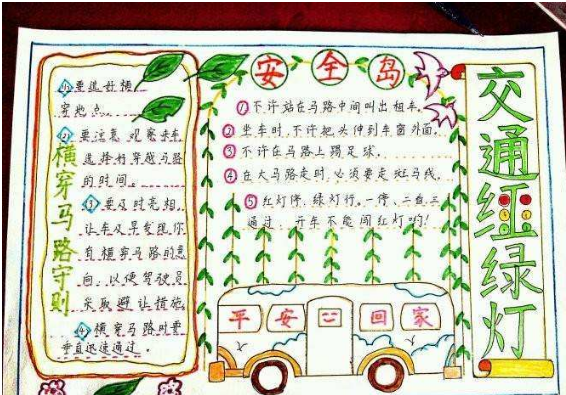 横穿马路守则
①要选好横
穿地点。
②要注意观察来车
选择好穿越马路
的时间。
③要及时亮相,
让车及早发现你
有横穿马路的意
向,以便驾驶员
采取避让措施。
④横穿马路时要
垂直迅速通过。
安全岛
①不许站在马路中间叫出租车。
②坐车时,不许把头伸到车窗外面。
③不许在马路上踢足球。
④在大马路走时,必须要走斑马线。
⑤红灯停,绿灯行。一停、二看三
通过,开车不能闯红灯哟!
平安回家
交通红绿灯